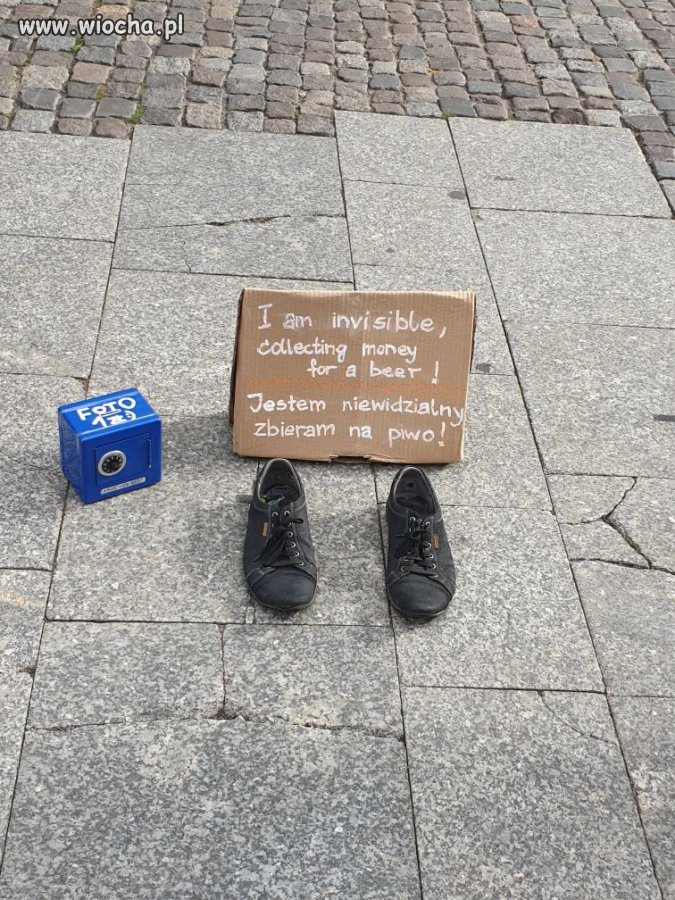 www.wiocha.pl
I am invisible,
collecting money
for a beer!
Jestem niewidzialny
zbieram na piwo!
FOTO
1zł